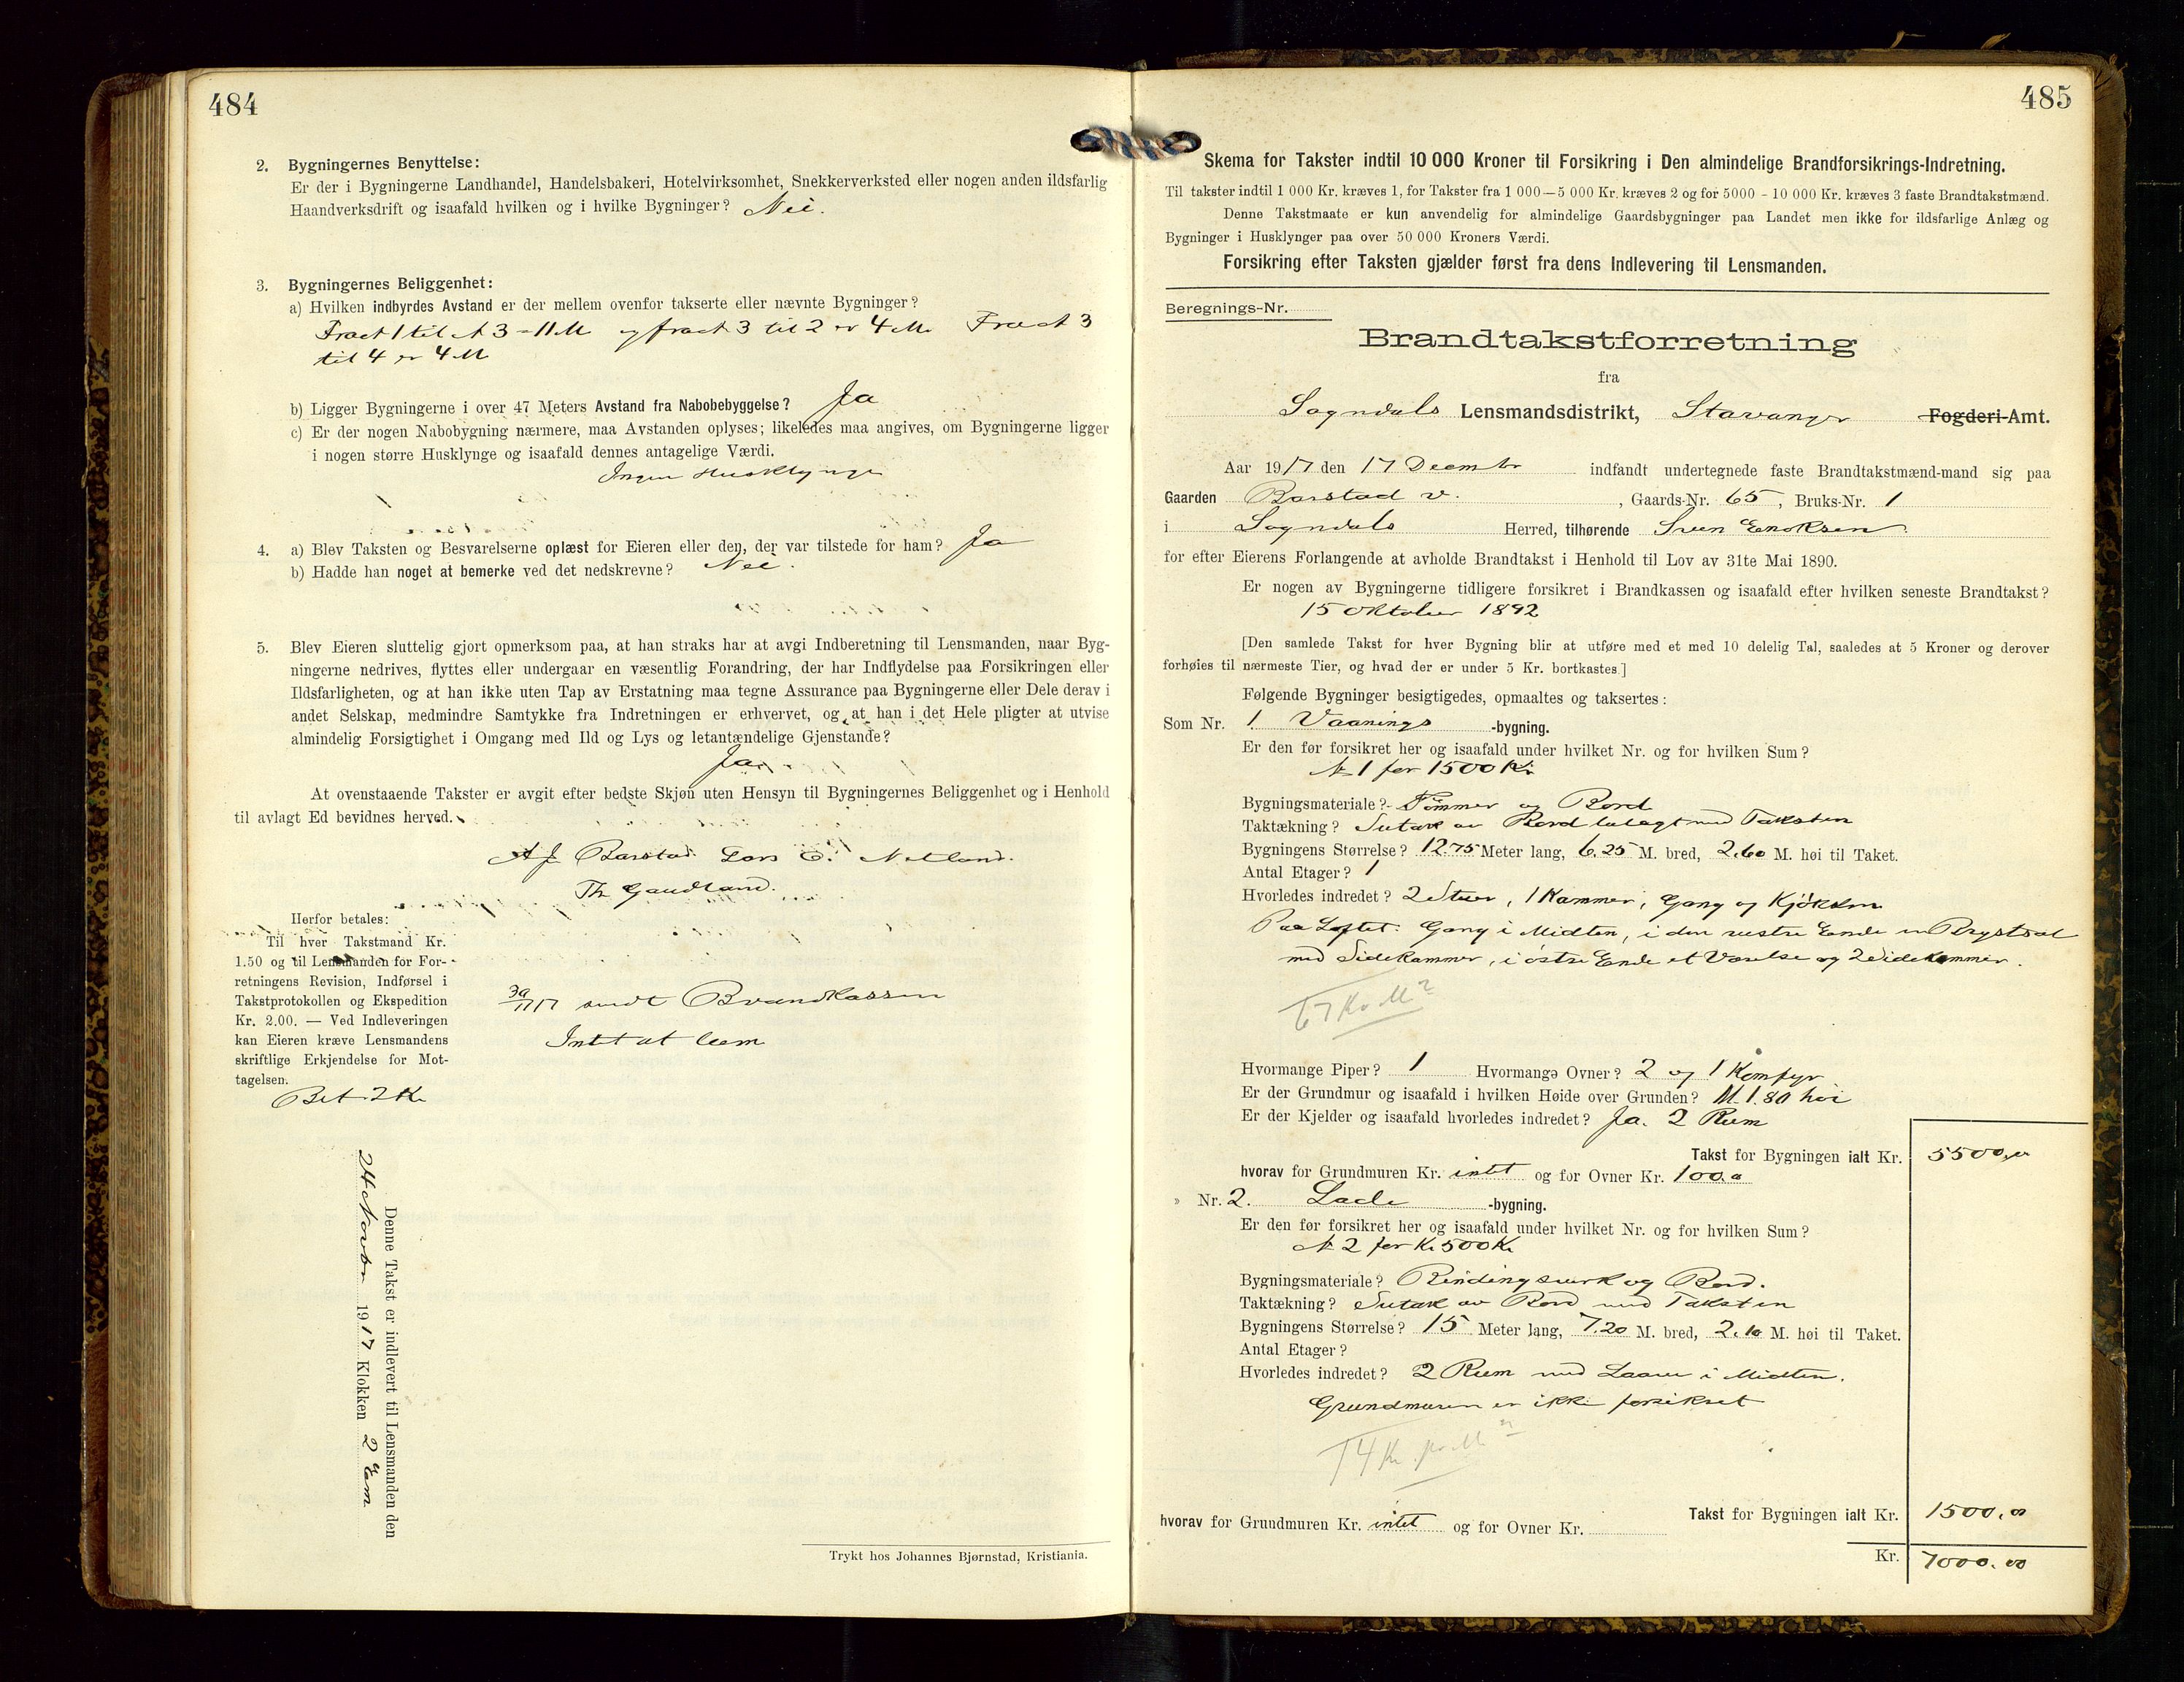 484
2. Bygningernes Benyttelse:
Er der i Bygningerne Landhandel, Handelsbakeri, Hotelvirksomhet, Snekkerverksted eller nogen anden ildsfarlig
Haandverksdrift og isaafald hvilken og i hvilke Bygninger? Nei.
3. Bygningernes Beliggenhet:
a) Hvilken indbyrdes Avstand er der mellem ovenfor takserte eller nævnte Bygninger?
Fra 1 til № 3 = 11 M og fra 3 til 2 er 4 M. Fra 3
til 4 er 4 M
b) Ligger Bygningerne i over 47 Meters Avstand fra Nabobebyggelse? Ja
c) Er der nogen Nabobygning nærmere, maa Avstanden oplyses; likeledes maa angives, om Bygningerne ligger
i nogen større Husklynge og isaafald dennes antagelige Værdi.
Ingen Husklynge
4. a) Blev Taksten og Besvarelserne oplæst for Eieren eller den, der var tilstede for ham? Ja
b) Hadde han noget at bemerke ved det nedskrevne? Nei.
5. Blev Eieren sluttelig gjort opmerksom paa, at han straks har at avgi Indberetning til Lensmanden, naar Byg-
ningerne nedrives, flyttes eller undergaar en væsentlig Forandring, der har Indflydelse paa Forsikringen eller
Ildsfarligheten, og at han ikke uten Tap av Erstatning maa tegne Assurance paa Bygningerne eller Dele derav i
andet Selskap, medmindre Samtykke fra Indretningen er erhvervet, og at han i det Hele pligter at utvise
almindelig Forsigtighet i Omgang med Ild og Lys og letantændelige Gjenstande?
Ja
At ovenstaaende Takster er avgit efter bedste Skjøn uten Hensyn til Bygningernes Beliggenhet og i Henhold
til avlagt Ed bevidnes herved.
A J Barstad. Lars E. Netland.
Th. Gaudland.
Herfor betales:
Til hver Takstmand Kr.
1.50 og til Lensmanden for For-
retningens Revision, Indførsel i
Takstprotokollen og Ekspedition
Kr. 2.00. — Ved Indleveringen
kan Eieren kræve Lensmandens
skriftlige Erkjendelse for Mot-
tagelsen.
Bet 2 Kr
sendt Brandkassen
Intet at bem
Denne Takst er indlevert til Lensmanden den
24 Novbr 1917 Klokken 2 Em
Trykt hos Johannes Bjørnstad, Kristiania.
485
Skema for Takster indtil 10 000 Kroner til Forsikring i Den almindelige Brandforsikrings-Indretning.
Til takster indtil 1 000 Kr. kræves 1, for Takster fra 1 000—5 000 Kr. kræves 2 og for 5000 - 10 000 Kr. kræves 3 faste Brandtakstmænd.
Denne Takstmaate er kun anvendelig for almindelige Gaardsbygninger paa Landet men ikke for ildsfarlige Anlæg og
Bygninger i Husklynger paa over 50 000 Kroners Værdi.
Forsikring efter Taksten gjælder først fra dens Indlevering til Lensmanden.
Beregnings-Nr.
Brandtakstforretning
fra
Sogndals Lensmandsdistrikt, Stavanger Fogderi-Amt.
Aar 1917 den 17 Decembr indfandt undertegnede faste Brandtakstmænd-mand sig paa
Gaarden Barstad v. , Gaards-Nr. 65, Bruks-Nr. 1
i Sogndals Herred, tilhørende Sven Enoksen
for efter Eierens Forlangende at avholde Brandtakst i Henhold til Lov av 31te Mai 1890.
Er nogen av Bygningerne tidligere forsikret i Brandkassen og isaafald efter hvilken seneste Brandtakst?
15 Oktober 1892
[Den samlede Takst for hver Bygning blir at utføre med et med 10 delelig Tal, saaledes at 5 Kroner og derover
forhøies til nærmeste Tier, og hvad der er under 5 Kr. bortkastes.]
Følgende Bygninger besigtigedes, opmaaltes og taksertes:
Som Nr. 1 Vaanings -bygning.
Er den før forsikret her og isaafald under hvilket Nr. og for hvilken Sum?
№ 1 for 1500 Kr
Bygningsmateriale? Tømmer og Bord
Taktækning? Sutak av Bord belagt med Taksten
Bygningens Størrelse? 12.75 Meter lang, 6.25 M. bred, 2.60 M. høi til Taket.
Antal Etager? 1
Hvorledes indredet? 2 Stuer, 1 Kammer, Gang og Kjøkken
Paa Loftet: Gang i Midten, i den vestre Ende en Brystsal
med Sidekammer, i østre Ende et Værelse og 2 Sidekammer.
67 Kr M²
Hvormange Piper? 1 Hvormange Ovner? 2 og 1 Komfyr
Er der Grundmur og isaafald i hvilken Høide over Grunden? M 1.80 høi
Er der Kjelder og isaafald hvorledes indredet? Ja. 2 Rum
Takst for Bygningen ialt Kr. 5500,00
hvorav for Grundmuren Kr. intet og for Ovner Kr. 100.00
» Nr. 2. Lade -bygning.
Er den før forsikret her og isaafald under hvilket Nr. og for hvilken Sum?
№ 2 for Kr 500 Kr
Bygningsmateriale? Bindingsverk og Bord.
Taktækning? Sutak av Bord med Taksten
Bygningens Størrelse? 15 Meter lang, 7.20 M. bred, 2.10 M. høi til Taket.
Antal Etager?
Hvorledes indredet? 2 Rum med Laave i Midten.
Grundmuren er ikke forsikret
14 Kr. pr M²
hvorav for Grundmuren Kr. intet og for Ovner Kr. Takst for Bygningen ialt Kr. 1500,00
Kr. 7000.00